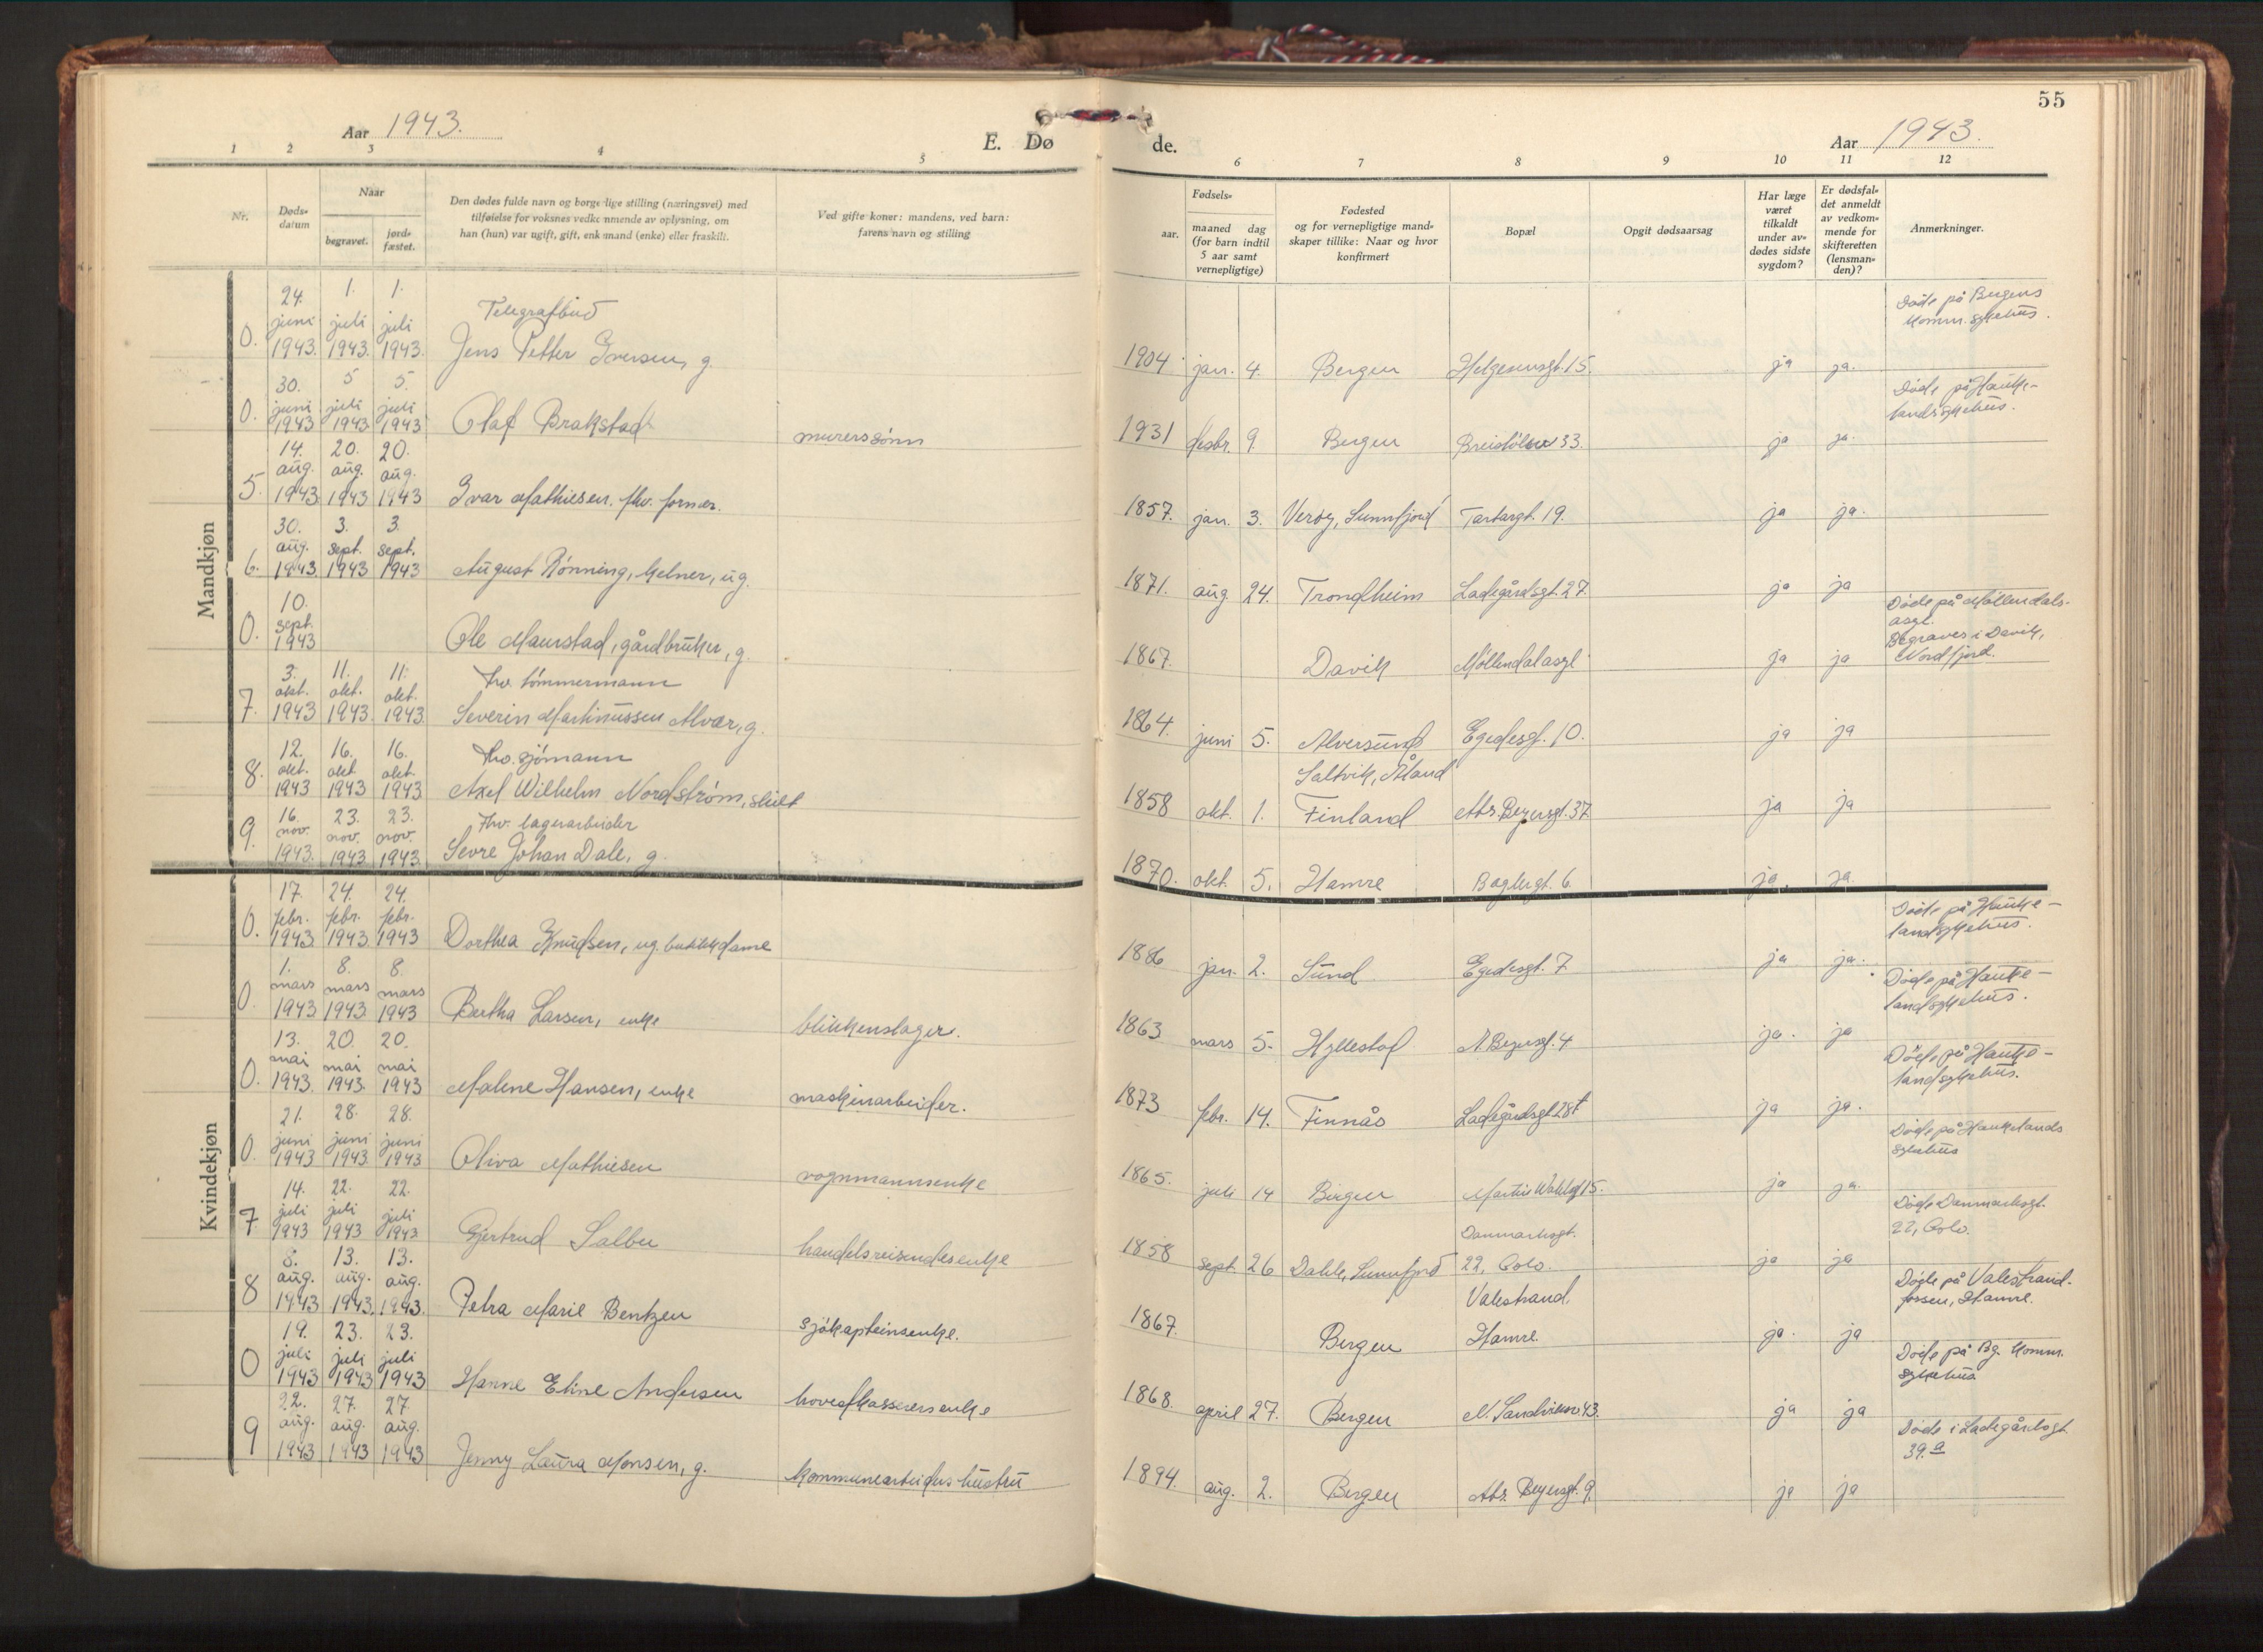 55
Aar 1943.
E. Dø
de.
Aar 1943.
1 2 3 4 5
6 7 8 9 10 11 12
Nr.
Døds-
datum
Naar
begravet.
jord-
fæstet.
Den dødes fulde navn og borgerlige stilling (næringsvei) med
tilføielse for voksnes vedkommende av oplysning, om
han (hun) var ugift, gift, enkemand (enke) eller fraskilt.
Ved gifte koner: mandens, ved barn:
farens navn og stilling
Fødsels-
aar.
maaned dag
(for barn indtil
5 aar samt
vernepligtige)
Fødested
og for vernepligtige mand-
skaper tillike: Naar og hvor
konfirmert
Bopæl
Opgit dødsaarsag
Har læge
været
tilkaldt
under av-
dødes sidste
sygdom?
Er dødsfal-
det anmeldt
av vedkom-
mende for
skifteretten
(lensman-
den)?
Anmerkninger.
Mandkjøn
24. 1. 1. Telegrafbud Døde på Bergens
juni juli juli komm. sykehus.
0. 1943. 1943. 1943. Jens Petter Iversen, g. 1904 jan. 4. Bergen Helgesensgt. 15. ja ja.
30. 5 5. Døde på Hauke-
juni juli juli landsykehus.
0. 1943 1943 1943 Olaf Brakstad murerssønn 1931 desbr. 9. Bergen 33. ja ja.
14. 20. 20.
aug. aug. aug.
5. 1943 1943 1943 Ivar Mathiesen. fhv. former. 1857. jan. 3. Sunnfjord Tartargt. 19. ja ja.
30. 3. 3.
aug. sept. sept.
6. 1943 1943 1943 August Rønning, kelner, ug. 1871. aug. 24. Trondheim Ladegårdsgt. 27. ja ja
10. Døde på Møllendals-
sept. asyl.
0. 1943 Ole Maurstad, gårdbruker, g. 1867. Davik Møllendalasyl ja ja Begraves i Davik,
Nordfjord.
3. 11. 11. fhv. tømmermann
okt. okt. okt.
7. 1943 1943 1943 Severin Martinussen Alvær, g. 1864. juni 5. Alversund Egedesgt. 10. ja ja
12. 16. 16. fhv. sjømann Saltvik, Åland
okt. okt. okt.
8. 1943 1943 1943 Axel Wilhelm Nordstrøm, skilt 1858 okt. 1. Finland Abs. Beyersgt. 37. ja ja
16. 23. 23. fhv. lagerarbeider
nov. nov. nov.
9. 1943. 1943 1943 Sevre Johan Dale, g. 1870. okt. 5. Hamre Baglergt. 6. ja. ja.
Kvindekjøn
17. 24. 24. Døde på Hauke-
febr. febr. febr. landsykehus.
0. 1943. 1943. 1943 Dorthea Knudsen, ug. butikkdame 1886 jan. 2. Sund Egedesgt. 7 ja ja.
1. 8. 8. Døde på Hauke-
mars mars mars landsykehus.
0. 1943 1943 1943 Bertha Larsen, enke blikkenslager. 1863 mars 5. Hyllestad A. Beyersgt. 4 ja. ja
13. 20. 20. Døde på Hauke-
mai mai mai landsykehus.
0. 1943. 1943. 1943 Malene Hansen, enke maskinarbeider. 1873 febr. 14. Finnås Ladegårdsgt 28 ja ja.
21. 28. 28. Døde på Haukelands
juni juni juni sykehus
0. 1943 1943 1943 Oliva Mathiesen vognmannsenke 1865. juli 14 Bergen 15. ja ja.
14. 22. 22. Danmarksgt. Døde Danmarksgt.
juli juli juli 22, Oslo.
7. 1943 1943 1943 Gjertrud Salbu handelsreisendesenke 1858 sept. 26 Dahle, Sunnfjord 22, Oslo. ja ja
8. 13. 13. Valestrand. Døde på Valestrand-
aug. aug. aug. fossen, Hamre.
8 1943 1943. 1943. Petra Marie Bentzen sjøkapteinsenke. 1867. Bergen Hamre. ja. ja
19. 23. 23. Døde på Bg. komm.
juli juli juli sykehus
0 1943 1943 1943 Hanne Eline Andersen hovedkasserersenke 1868. april 27. Bergen N. Sandviksv. 43. ja ja
22. 27. 27. Døde i Ladegårdsgt.
aug. aug. aug. 39.a
9 1943 1943 1943 Jenny Laura Monsen, g. kommunearbeiders hustru 1894. aug. 2. Bergen Abs. Beyersgt. 9. ja ja